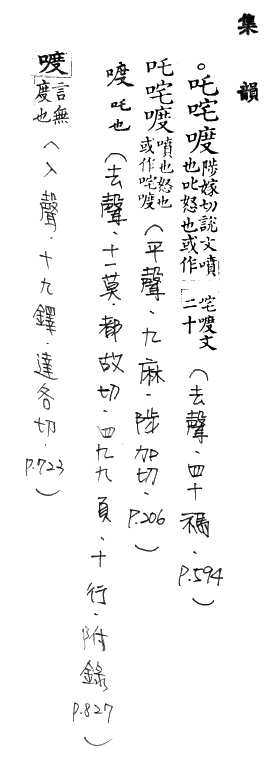 集韻
。吒咤喥陟嫁切說文噴也叱怒也或作咤喥文二十(去聲.四十禡.P.594)
吒咤喥噴也怒也或作咤喥(平聲.九麻.陟加切.P.206)
喥吒也(去聲.十一莫.都故切.四九九頁.十行.附錄P.827)
喥言無度也(入聲.十九鐸.達各切.P.723)